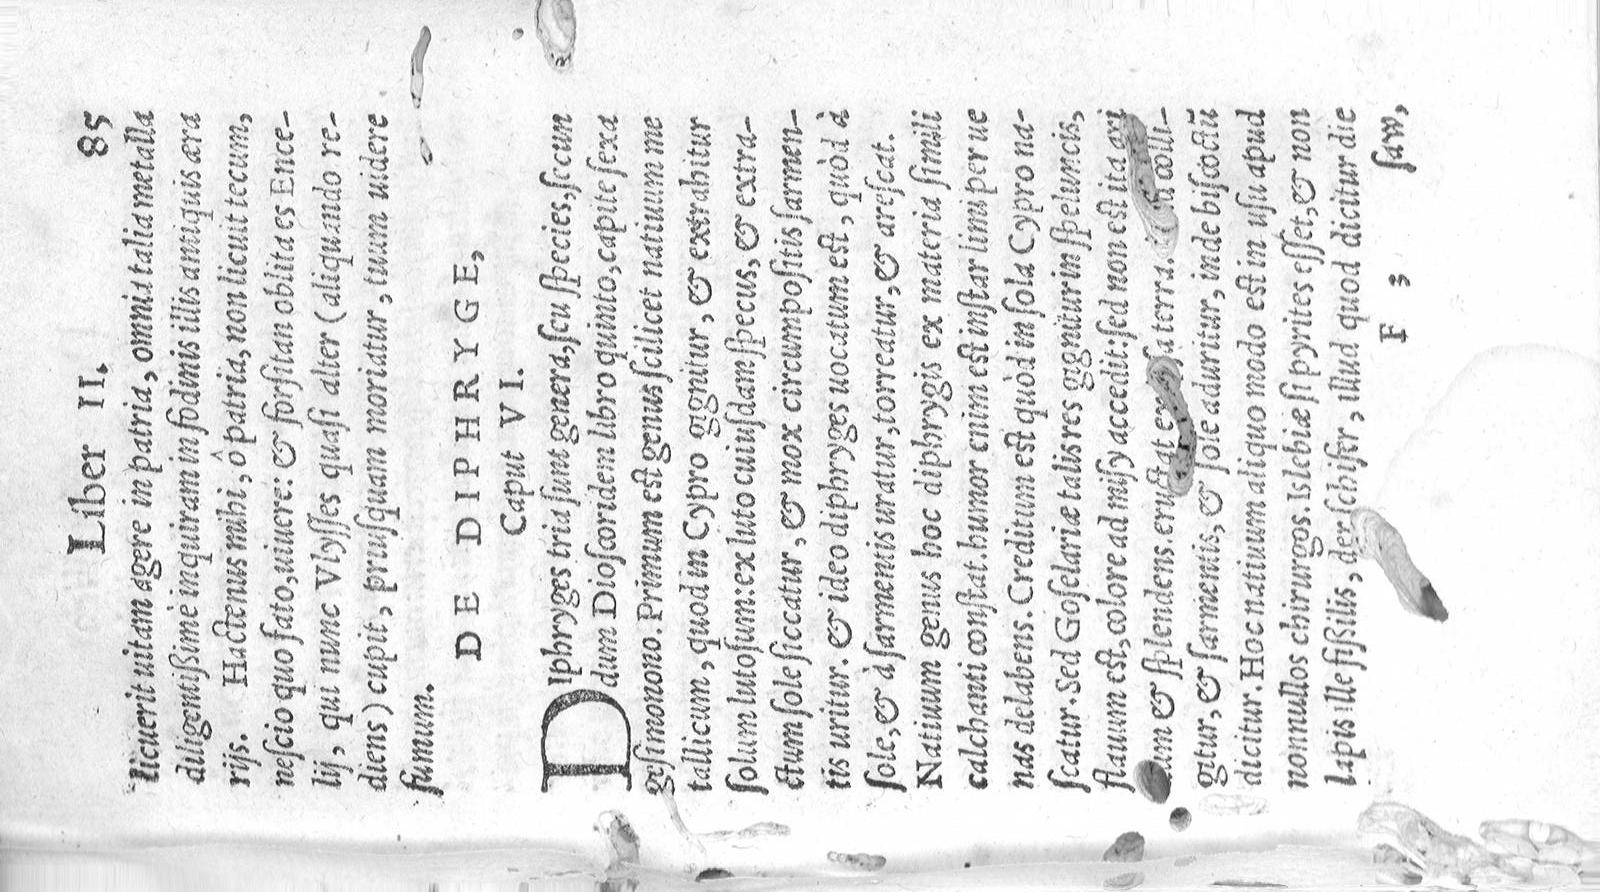 Liber II. 85
licuerit uitam agere in patria, omnia talia metalla
diligentißimè inquiram in fodinis illis antiquis æra
rijs. Hactenus mihi, ô patria, non licuit tecum,
neſcio quo fato, uiuere: & forſitan oblita es Ence-
lij, qui nunc Vlyſſes quaſi alter (aliquando re-
diens) cupit, priuſquam moriatur, tuum uidere
fumum.
DE DIPHRYGE,
Caput VI.
DIphryges tria ſunt genera, ſeu ſpecies, ſecun
dum Dioſcoridem libro quinto, capite ſexa
geſimonono. Primum est genus ſcilicet natiuum me
tallicum, quod in Cypro gignitur, & extrahitur
ſolum lutoſum: ex luto cuiuſdam ſpecus, & extra-
ctum ſole ſiccatur, & mox circumpoſitis ſarmen-
tis uritur. & ideo diphryges uocatum est, quòd à
ſole, & à ſarmentis uratur, torreatur, & areſcat.
Natiuum genus hoc diphrygis ex materia ſimili
calchanti conſtat. humor enim est inſtar limi per ue
nas delabens. Creditum est quòd in ſola Cypro na-
ſcatur. Sed Goſelariæ talis res gignitur in ſpeluncis,
flauum est, colore ad miſy accedit: ſed non est ita
& ſplendens, terra. colli-
gitur, & ſarmentis, & ſole aduritur, inde biſcoctũ
dicitur. Hoc natiuum aliquo modo eſt in uſu apud
nonnullos chirurgos. Islebiæ ſi pyrites eſſet, & non
lapis ille fißilis, der ſchifer, illud quod dicitur die
F 3 ſaw,